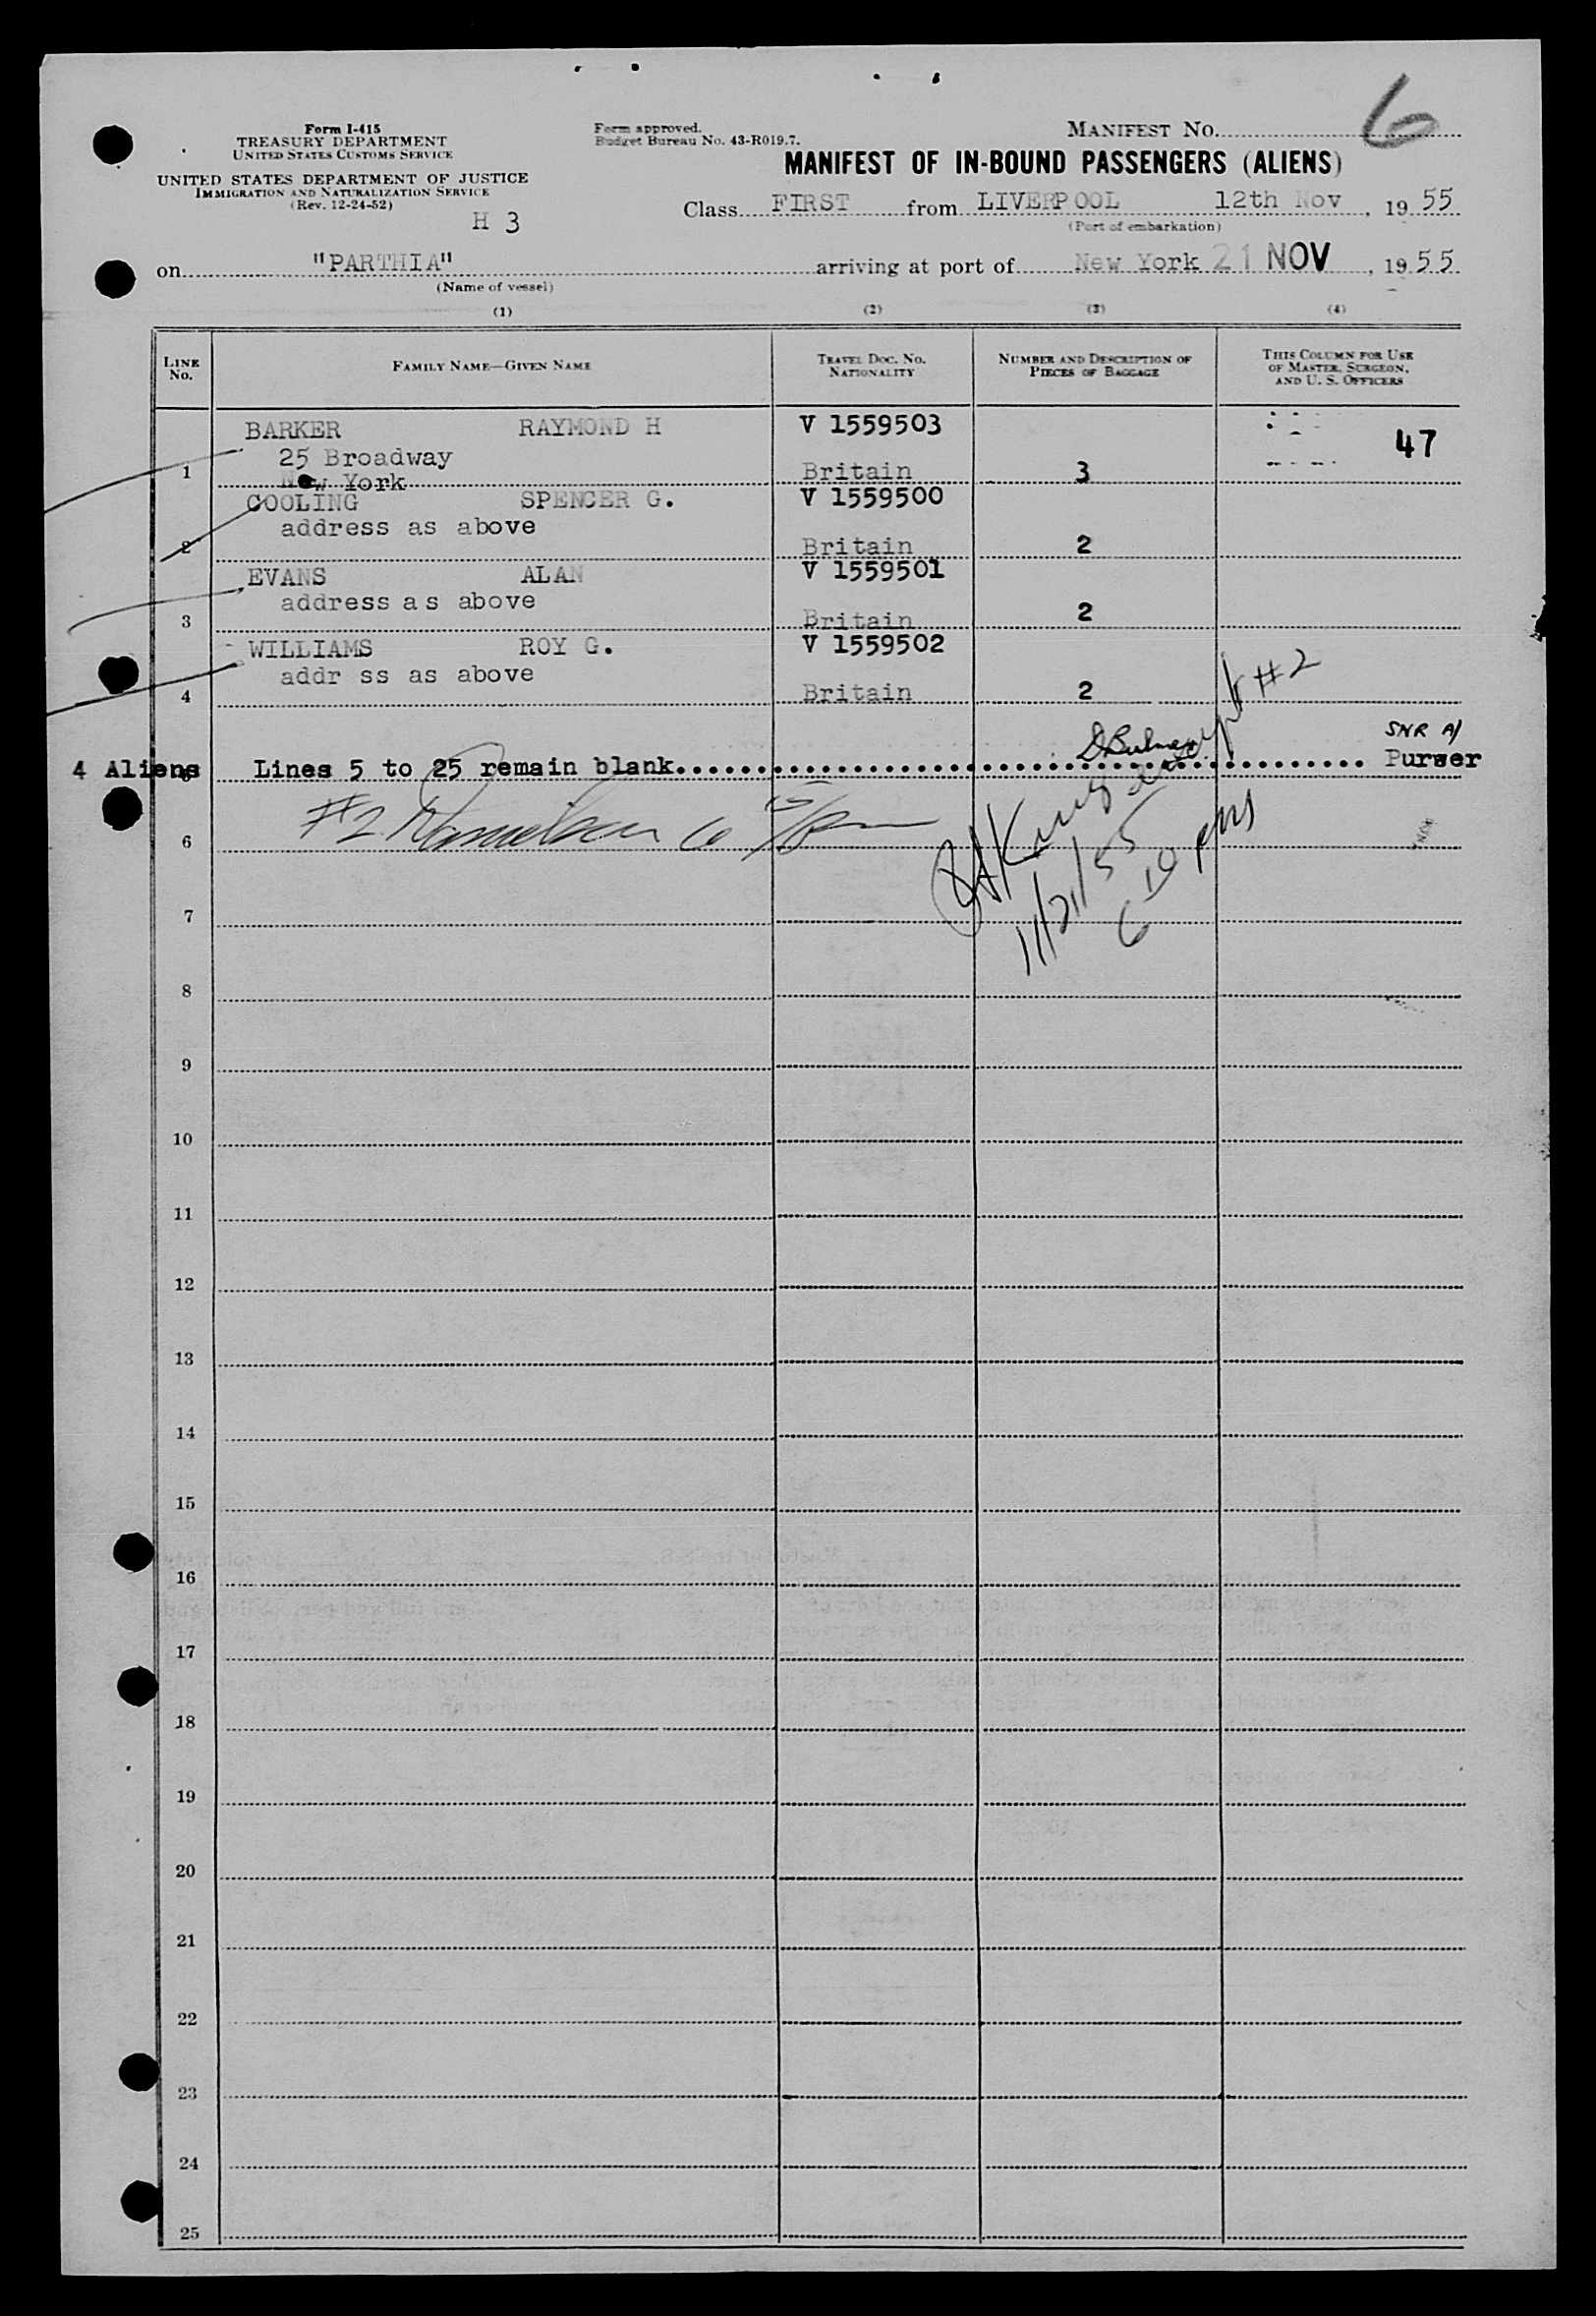 6
Form I-415
TREASURY DEPARTMENT
UNITED STATES CUSTOMS SERVICE
UNITED STATES DEPARTMENT OF JUSTICE
IMMIGRATION AND NATURALIZATION SERVICE
(Rev. 12-24-52)
H 3
Form approved.
Budget Bureau No. 43-R019.7.
MANIFEST NO.
MANIFEST OF IN-BOUND PASSENGERS (ALIENS)
Class FIRST from LIVERPOOL 12th Nov, 1955
(Port of embarkation)
on "PARTHIA" arriving at port of New York 21 NOV, 1955
(Name of vessel)
(1) (2) (3) (4)
LINE NO. FAMILY NAME—GIVEN NAME TRAVEL DOC. NO. NATIONALITY NUMBER AND DESCRIPTION OF PIECES OF BAGGAGE THIS COLUMN FOR USE OF MASTER, SURGEON, AND U. S. OFFICERS
BARKER RAYMOND H V 1559503 47
25 Broadway
1 New York Britain 3
COOLING SPENCER G. V 1559500
address as above
2 Britain 2
EVANS ALAN V 1559501
address as above
3 Britain 2
WILLIAMS ROY G. V 1559502
addr ss as above
4 Britain 2
#2
SNR A/
4 Aliens Lines 5 to 25 remain blank Purser
#2
6
11/21/55
6 10 pm
7
8
9
10
11
12
13
14
15
16
17
18
19
20
21
22
23
24
25